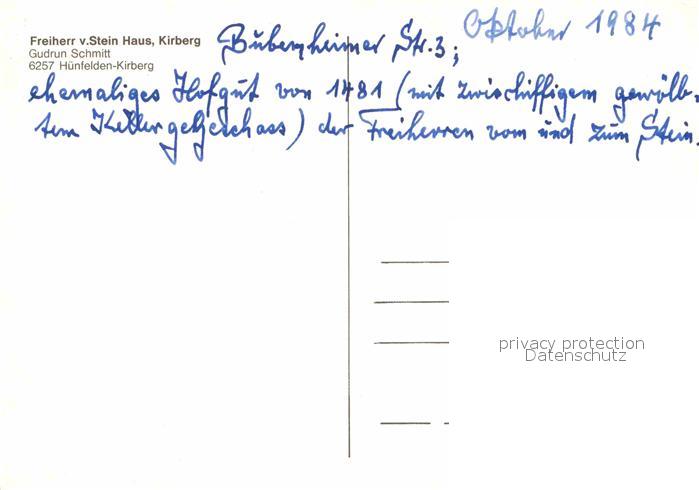 Oktober 1984
Freiherr v.Stein Haus, Kirberg
Bubenheimer Str. 3;
Gudrun Schmitt
6257 Hünfelden-Kirberg
ehemaliges Hofgut von 1481 (mit zwischiffigem gewölb-
tem Kellergeschoss) der Freiherren vom und zum Stein.
privacy protection
Datenschutz